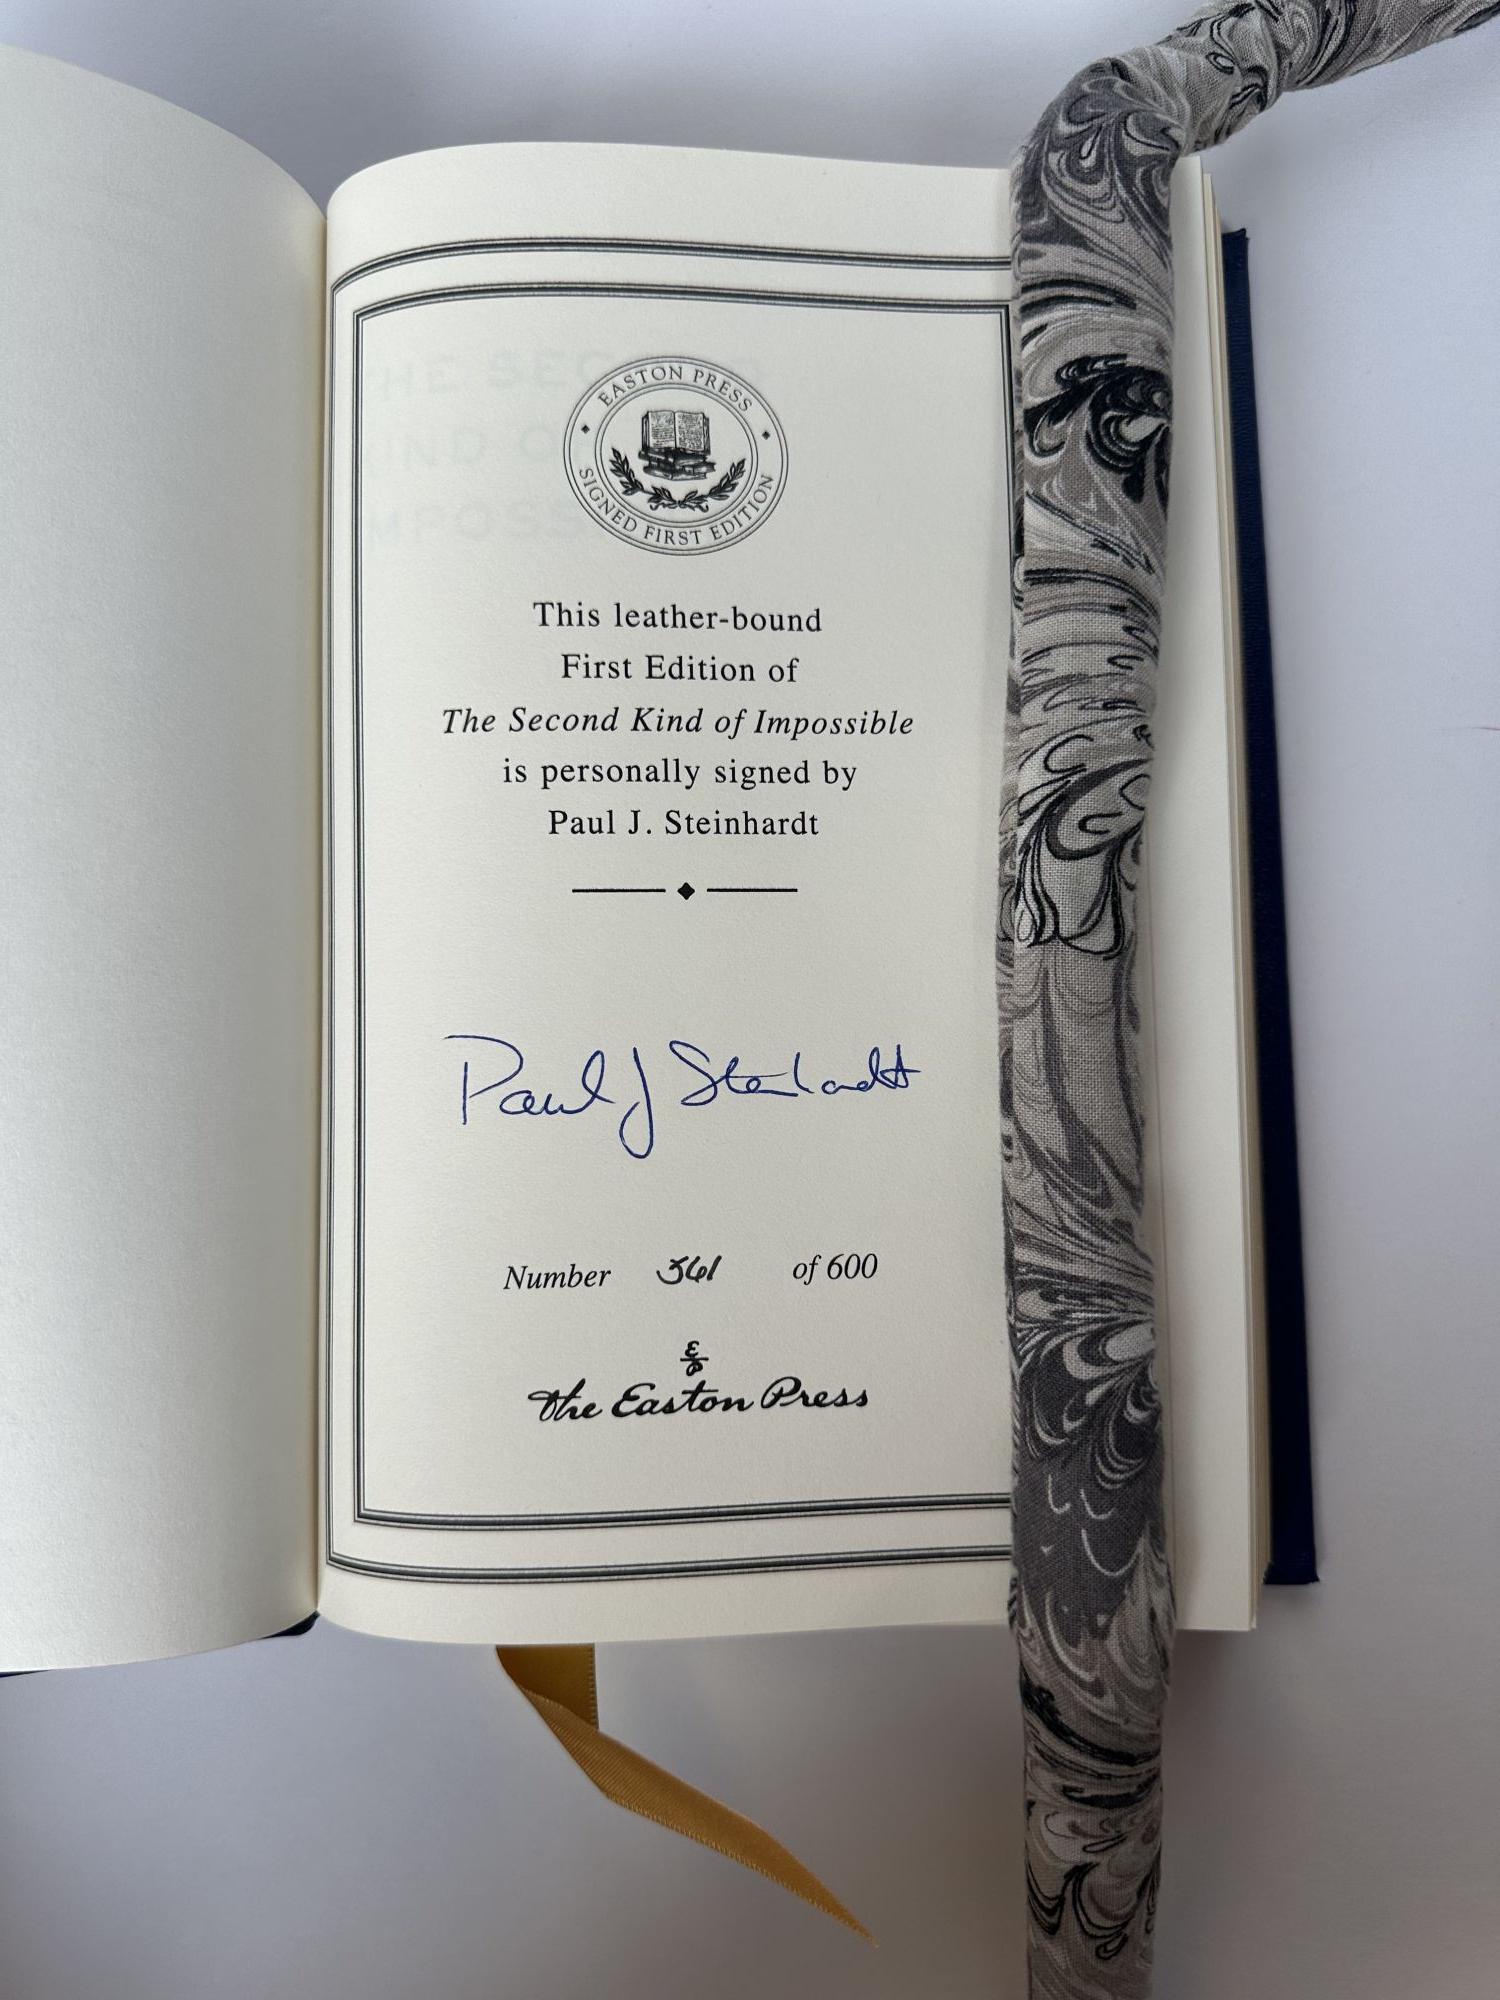 EASTON PRESS
SIGNED FIRST EDITION
This leather-bound
First Edition of
The Second Kind of Impossible
is personally signed by
Paul J. Steinhardt
Paul J Steinhardt
Number of 600
The Easton Press